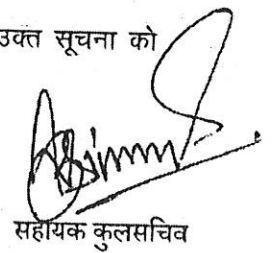 उक्त सूचना को
सहायक कुलसचिव